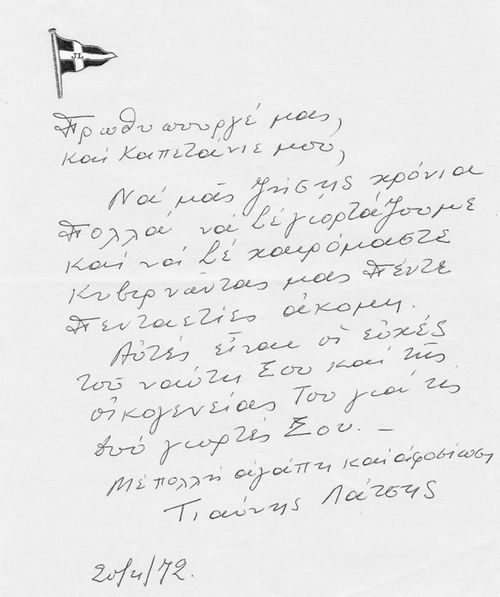 JL
Πρωθυπουργέ μας,
καί Καπετάνιε μου,
Νά μᾶς ζήσης χρόνια
Πολλά νά Σέ γιορτάζουμε
καί νά Σέ χαιρόμαστε
Κυβερνῶντας μας Πέντε
Πενταετίες ἀκόμη.
Αὐτές εἶναι οἱ εὐχές
τοῦ ναύτη Σου καί τῆς
οἰκογενείας Του γιά τίς
δυό γιορτές Σου. –
Μέ πολλή ἀγάπη καί ἀφοσίωση
Γιάννης Λάτσης
20/4/72.